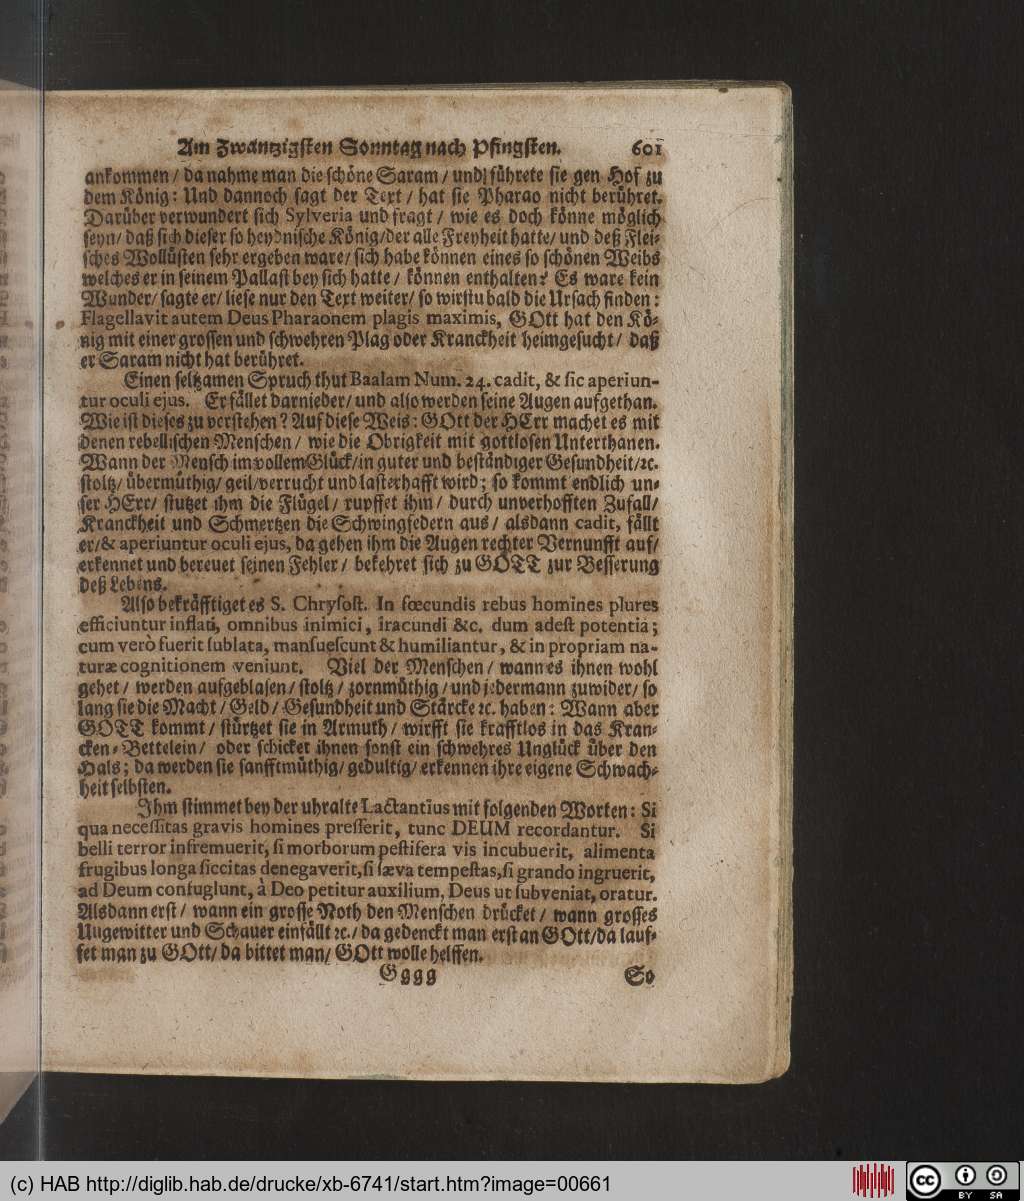 Am Zwäntzigsten Sonntag nach Pfingsten. 601
ankommen / da nahme man die schöne Saram / und führete sie gen Hof zu
dem König: Und dannoch sagt der Text / hat sie Pharao nicht berühret.
Darüber verwundert sich Sylveria und fragt / wie es doch könne möglich
seyn/ daß sich dieser so heydnische König/der alle Freyheit hatte/ und deß Flei-
sches Wollüsten sehr ergeben ware/ sich habe können eines so schönen Weibs
welches er in seinem Pallast bey sich hatte / können enthalten? Es ware kein
Wunder/ sagte er/ liese nur den Text weiter/ so wirstu bald die Ursach finden:
Flagellavit autem Deus Pharaonem plagis maximis, GOtt hat den Kö-
nig mit einer grossen und schwehren Plag oder Kranckheit heimgesucht / daß
er Saram nicht hat berühret.
Einen seltzamen Spruch thut Baalam Num. 24. cadit, & ſic aperiun-
tur oculi ejus. Er fället darnieder/ und also werden seine Augen aufgethan.
Wie ist dieses zu verstehen? Auf diese Weis: GOtt der HErr machet es mit
denen rebellischen Menschen / wie die Obrigkeit mit gottlosen Unterthanen.
Wann der Mensch im vollem Glück/in guter und beständiger Gesundheit/ꝛc.
stoltz/ übermüthig/ geil/verrucht und lasterhafft wird; so kommt endlich un-
ser HErr/ stutzet ihm die Flügel/ rupffet ihm/ durch unverhofften Zufall/
Kranckheit und Schmertzen die Schwingfedern aus / alsdann cadit, fällt
er/& aperiuntur oculi ejus, da gehen ihm die Augen rechter Vernunfft auf/
erkennet und bereuet seinen Fehler / bekehret sich zu GOTT zur Besserung
deß Lebens.
Also bekräfftiget es S. Chryſoſt. In fœcundis rebus homines plures
efficiuntur inflati, omnibus inimici, iracundi &c. dum adeſt potentia;
cum verò fuerit ſublata, manſueſcunt & humiliantur, & in propriam na-
turæ cognitionem veniunt. Viel der Menschen / wann es ihnen wohl
gehet / werden aufgeblasen / stoltz / zornmüthig / und jedermann zuwider/ so
lang sie die Macht / Geld / Gesundheit und Stärcke ꝛc. haben: Wann aber
GOTT kommt / stürtzet sie in Armuth / wirfft sie krafftlos in das Kran-
cken-Bettelein / oder schicket ihnen sonst ein schwehres Unglück über den
Hals; da werden sie sanfftmüthig/ gedultig/ erkennen ihre eigene Schwach-
heit selbsten.
Ihm stimmet bey der uhralte Lactantius mit folgenden Worten: Si
qua neceſſitas gravis homines preſſerit, tunc DEUM recordantur. Si
belli terror infremuerit, ſi morborum peſtifera vis incubuerit, alimenta
frugibus longa ſiccitas denegaverit, ſi ſæva tempeſtas, ſi grando ingruerit,
ad Deum confugiunt, à Deo petitur auxilium, Deus ut ſubveniat, oratur.
Alsdann erst / wann ein grosse Noth den Menschen drücket / wann grosses
Ungewitter und Schauer einfällt ꝛc./ da gedenckt man erst an GOtt/da lauf-
fet man zu GOtt/ da bittet man/ GOtt wolle helffen.
Gggg So
(c) HAB http://diglib.hab.de/drucke/xb-6741/start.htm?image=00661
cc BY SA